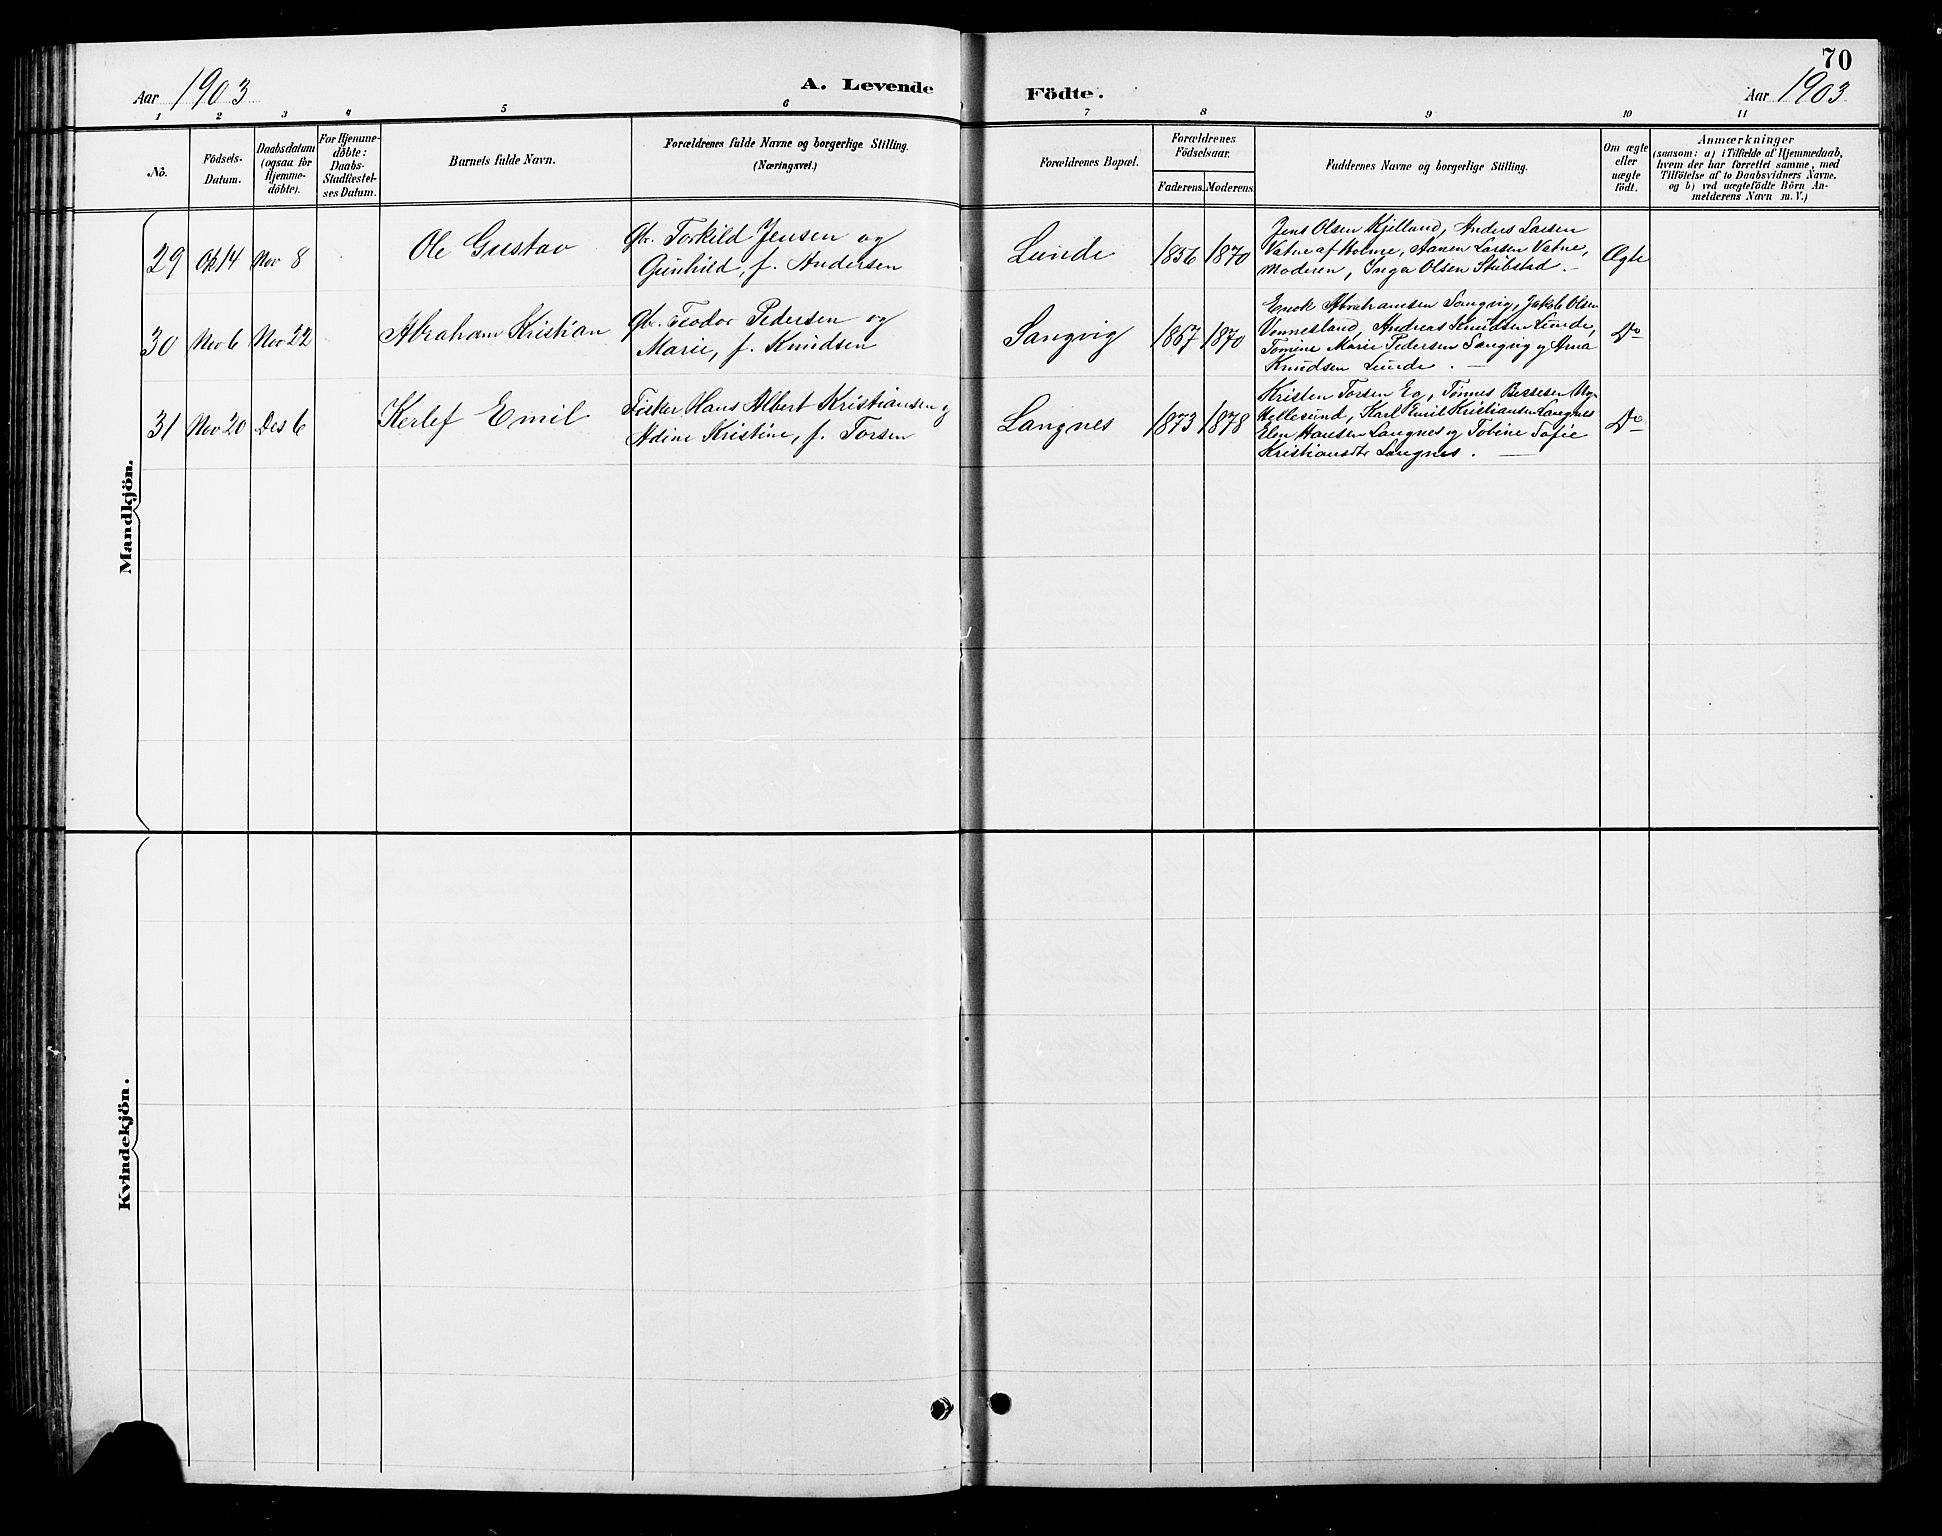 70
Aar 1903
A. Levende Födte.
Aar 1903
1 2 3 4 5 6 7 8 9 10 11
No.
Födsels-
Datum.
Daabsdatum
(ogsaa for
Hjemme-
döbte).
For Hjemme-
döbte:
Daabs-
Stadfæstel-
ses Datum.
Barnets fulde Navn.
Forældrenes fulde Navne og borgerlige Stilling.
(Næringsvei.)
Forældrenes Bopæl.
Forældrenes
Födselsaar.
Faderens. Moderens.
Faddernes Navne og borgerlige Stilling.
Om ægte
eller
uægte
födt.
Anmærkninger
(saasom: a) i Tilfælde af Hjemmedaab,
hvem der har forrettet samme, med
Tilföielse af to Daabsvidners Navne.
og b) ved uægtefödte Börn An-
melderens Navn m. V.)
Mandkjön.
29 Ok 14 Nov 8
Ole Gustav
Gbr. Torkild Jensen og
Gunhild, f. Andersen
Lunde
1856 1870
Jens Olsen Kjelland, Anders Larsen
Vatne af Holme, Aanen Larsen Vatne,
Moderen, Inga Olsen Stubstad.
Ægte
30 Nov 6 Nov 22
Abraham Kristian
Gbr. Teodor Pedersen og
Marie, f. Knudsen
Sangvig
1867 1870
Enok Abrahamsen Sangvig, Jakob Olsen
Vennesland, Andreas Knudsen Lunde,
Tomine Marie Pedersen Sangvig og Anna
Knudsen Lunde.
Do
31 Nov 20 Des 6
Kerlef Emil
Fisker Hans Albert Kristiansen og
Adine Kristine, f. Torsen
Langnes
1873 1878
Kristen Torsen Eg, Tönnes Bessesen
Hellesund, Karl Emil Kristiansen Langnes
Elen Hansen Langnes og Tobine Sofie
Kristiansdtr Langnes.
Do
Kvindekjön.